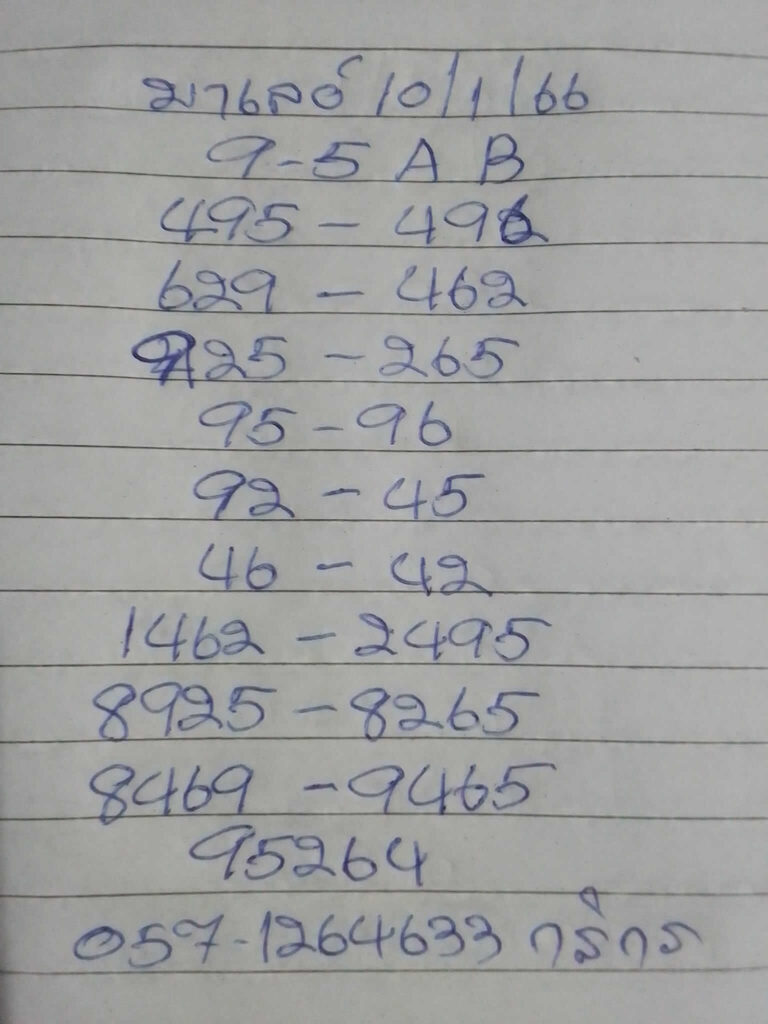 มาเลย์ 10/1/66
9-5 A B
495 - 496
629 - 462
925 - 265
95 - 96
92 - 45
46 - 42
1462 - 2495
8925 - 8265
8469 - 9465
95264
057-1264633